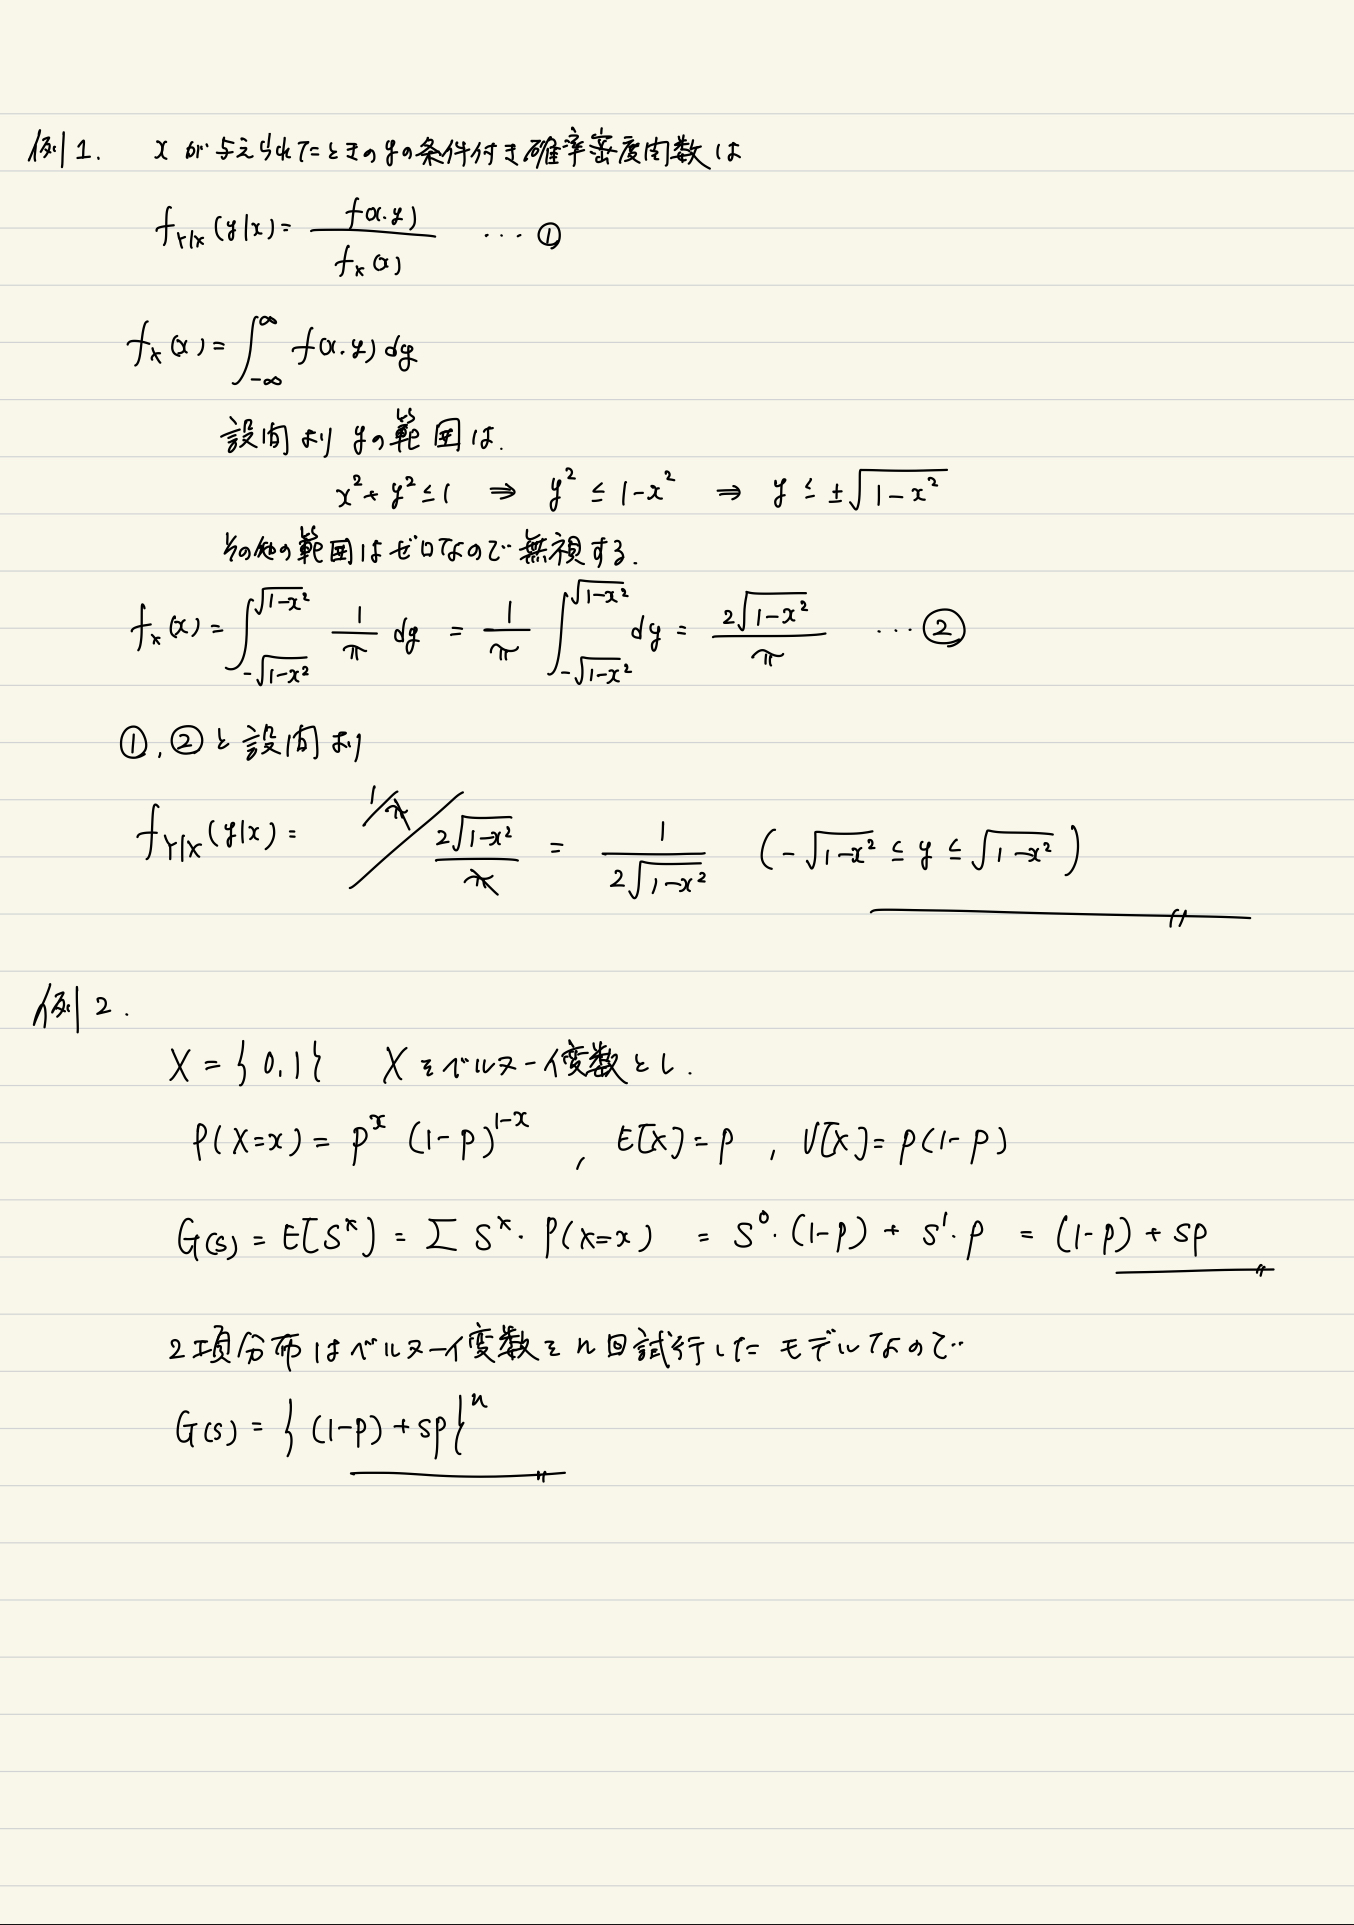 例1. xが与えられたときのyの条件付き確率密度関数は
f_{Y|X}(y|x) = f(x.y) / f_x(x) … ①
f_x(x) = ∫_{-∞}^{∞} f(x.y) dy
設問より yの範囲は.
x² + y² ≤ 1 ⇒ y² ≤ 1-x² ⇒ y ≤ ±√(1-x²)
その他の範囲はゼロなので無視する.
f_x(x) = ∫_{-√(1-x²)}^{√(1-x²)} 1/π dy = 1/π ∫_{-√(1-x²)}^{√(1-x²)} dy = 2√(1-x²) / π … ②
①, ②と設問より
f_{Y|X}(y|x) = 1/π / 2√(1-x²)/π = 1 / 2√(1-x²) (-√(1-x²) ≤ y ≤ √(1-x²))
例2.
X = {0,1} Xをベルヌーイ変数とし.
P(X=x) = p^x (1-p)^{1-x} , E[X] = p , V[X] = p(1-p)
G(s) = E[S^x] = Σ S^x · P(X=x) = S^0 · (1-p) + S^1 · p = (1-p) + sp
2項分布はベルヌーイ変数をn回試行したモデルなので
G(s) = {(1-p) + sp}^n